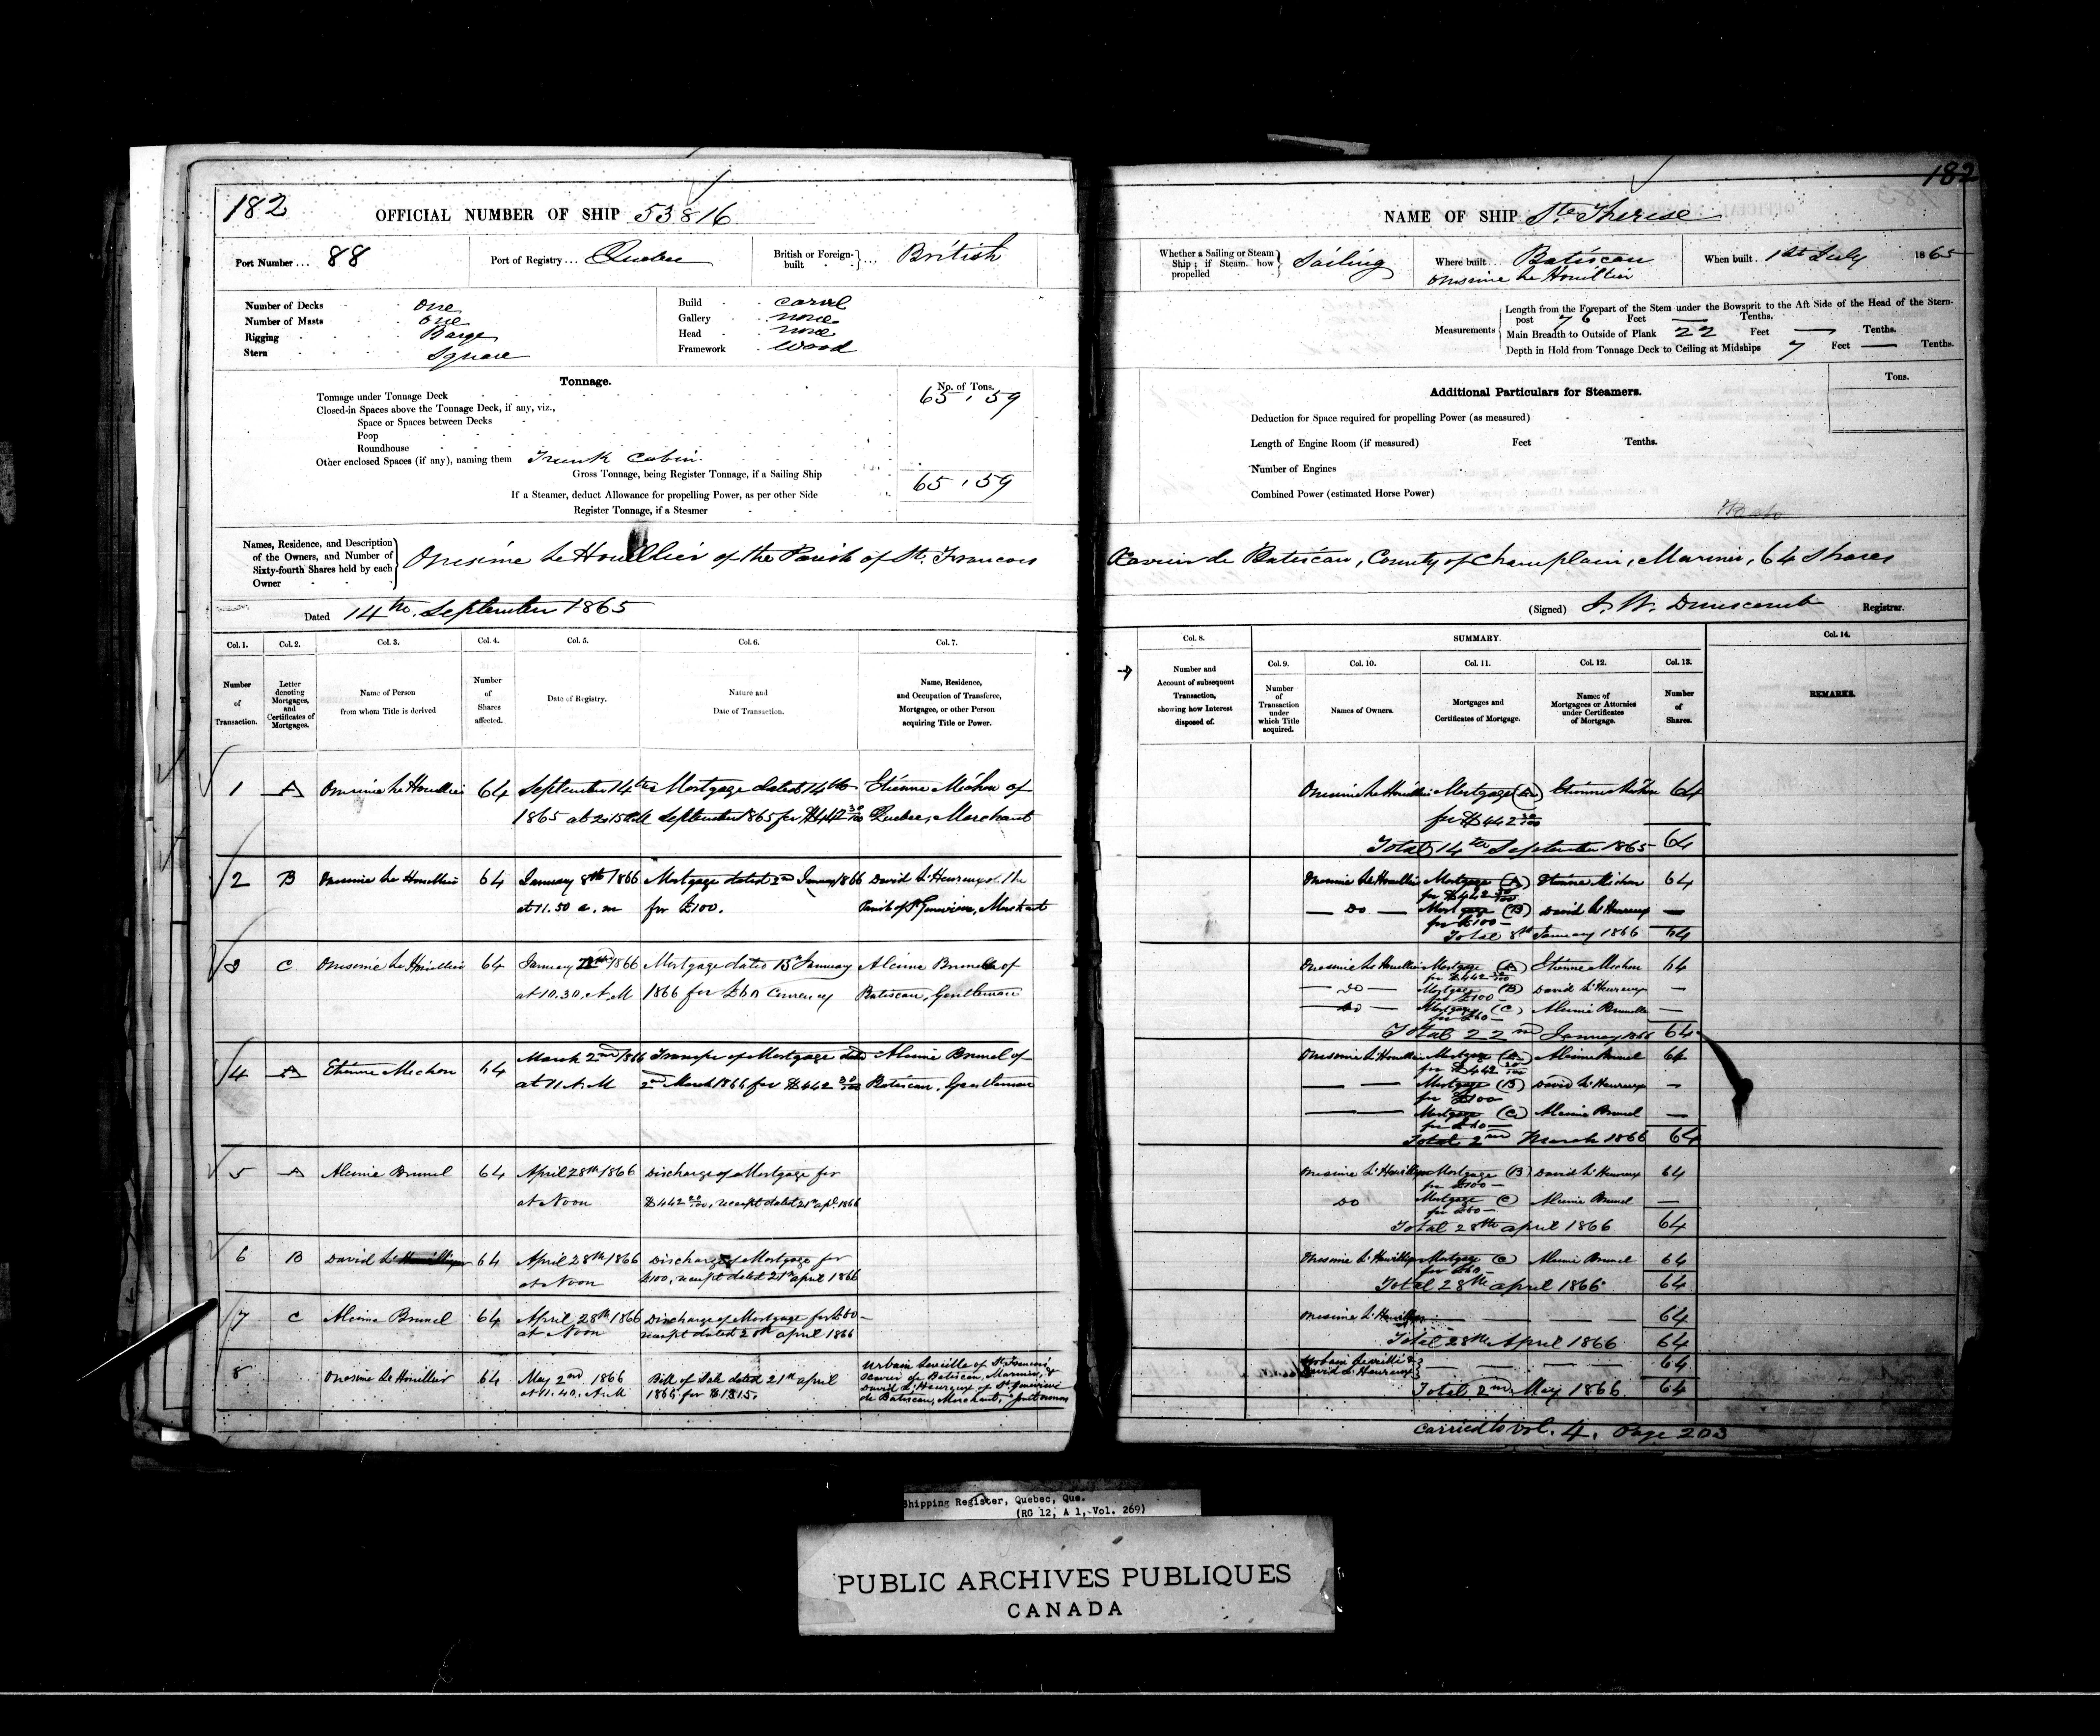 182
OFFICIAL NUMBER OF SHIP 53816
Port Number ... 88
Port of Registry ... Quebec
British or Foreign-built ... British
Number of Decks one
Number of Masts one
Rigging Barge
Stern Square
Build carvel
Gallery none
Head none
Framework Wood
Tonnage.
No. of Tons.
Tonnage under Tonnage Deck 65,59
Closed-in Spaces above the Tonnage Deck, if any, viz.,
Space or Spaces between Decks
Poop
Roundhouse
Other enclosed Spaces (if any), naming them Trunk Cabin
Gross Tonnage, being Register Tonnage, if a Sailing Ship 65,59
If a Steamer, deduct Allowance for propelling Power, as per other Side
Register Tonnage, if a Steamer
Names, Residence, and Description of the Owners, and Number of Sixty-fourth Shares held by each Owner
Onesime Le Houillier of the Parish of St. Francois
Dated 14th September 1865
Col. 1. Col. 2. Col. 3. Col. 4. Col. 5. Col. 6. Col. 7.
Number of Transaction.
Letter denoting Mortgages, and Certificates of Mortgages.
Name of Person from whom Title is derived
Number of Shares affected.
Date of Registry.
Nature and Date of Transaction.
Name, Residence, and Occupation of Transferee, Mortgagee, or other Person acquiring Title or Power.
1 A Onesime Le Houillier 64 September 14th Mortgage dated 14th Etienne Michon of
1865 at 2.15 P.M September 1865 for $442 30/100 Quebec, Merchant
2 B Onesime Le Houillier 64 January 8th 1866 Mortgage dated 2nd January 1866 David L'Heureux of the
at 11.50 a.m for £100. Parish of St Genevieve, Merchant
3 C Onesime Le Houillier 64 January 22nd 1866 Mortgage dated 15th January Alcime Brunel of
at 10.30 A.M 1866 for £60 Currency Batiscan, Gentleman
4 A Etienne Michon 64 March 2nd 1866 Transfer of Mortgage dated Alcime Brunel of
at 11 A.M 2nd March 1866 for $442 30/100 Batiscan, Gentleman
5 A Alcime Brunel 64 April 28th 1866 Discharge of Mortgage for
at Noon $442 30/100, receipt dated 21st apl. 1866
6 B David L' 64 April 28th 1866 Discharge of Mortgage for
at Noon £100, receipt dated 21st april 1866
7 C Alcime Brunel 64 April 28th 1866 Discharge of Mortgage for £60
at Noon receipt dated april 1866
8 Onesime Le Houillier 64 May 2nd 1866 Bill of Sale dated 21st april
at 11.40. A.M 1866 for $1315.
Urbain of St Francois
Xavier de Batiscan, Mariner, &
David L'Heureux of St Genevieve
de Batiscan, Merchant,
182
NAME OF SHIP Ste Therese
Whether a Sailing or Steam Ship; if Steam, how propelled Sailing
Where built Batiscan
Onesime Le Houillier
When built 1st July 1865
Measurements
Length from the Forepart of the Stem under the Bowsprit to the Aft Side of the Head of the Stern-
post 76 Feet — Tenths.
Main Breadth to Outside of Plank 22 Feet — Tenths.
Depth in Hold from Tonnage Deck to Ceiling at Midships 7 Feet — Tenths.
Additional Particulars for Steamers.
Tons.
Deduction for Space required for propelling Power (as measured)
Length of Engine Room (if measured) Feet Tenths.
Number of Engines
Combined Power (estimated Horse Power)
Xavier de Batiscan, County of Champlain, Mariner, 64 Shares
(Signed) J. W. Dunscomb Registrar.
Col. 8. SUMMARY. Col. 14.
Col. 9. Col. 10. Col. 11. Col. 12. Col. 13.
Number and Account of subsequent Transaction, showing how Interest disposed of.
Number of Transaction under which Title acquired.
Names of Owners.
Mortgages and Certificates of Mortgage.
Names of Mortgagees or Attornies under Certificates of Mortgage.
Number of Shares.
REMARKS.
Onesime Le Houillier Mortgage (A) Etienne Michon 64
for $442 30/100
Total 14th September 1865 64
Onesime Le Houillier Mortgage (A) Etienne Michon 64
for $442 30/100
— Do — Mortgage (B) David L'Heureux —
for £100 —
Total 8th January 1866 64
Onesime Le Houillier Mortgage (A) Etienne Michon 64
for $442 30/100
— Do — Mortgage (B) David L'Heureux —
for £100 —
— Do — Mortgage (C) Alcime Brunelle —
for £60 —
Total 22nd January 1866 64
Onesime L'Houillier Mortgage (A) Alcime Brunel 64
for $442 30/100
— — Mortgage (B) David L'Heureux —
for £100
— — Mortgage (C) Alcime Brunel —
for £60 —
Total 2nd March 1866 64
Onesime L'Houillier Mortgage (B) David L'Heureux 64
for £100 —
Do Mortgage (C) Alcime Brunel —
for £60 —
Total 28th april 1866 64
Onesime L'Houillier Mortgage (C) Alcime Brunel 64
for £60 —
Total 28th april 1866 64
Onesime L'Houillier — — — 64
Total 28th April 1866 64
Urbain & — — — — 64
David L'Heureux
Total 2nd May 1866 64
Carried to vol. 4. Page 203
Shipping Register, Quebec, Que.
(RG 12, A 1, Vol. 269)
PUBLIC ARCHIVES PUBLIQUES
CANADA